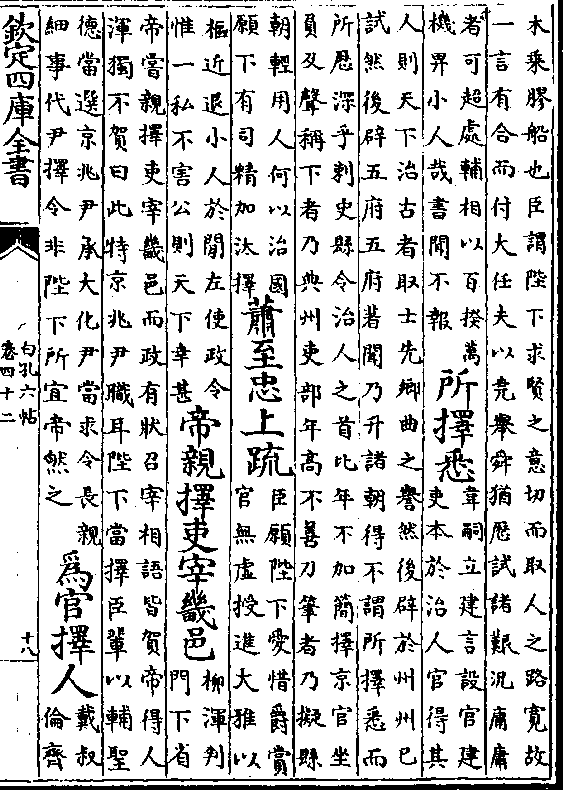 木乘膠船也臣謂陛下求賢之意切而取人之路寬故
一言有合而付大任夫以堯舉舜猶歷試諸艱況庸庸
者可超處輔相以百揆萬
機畀小人哉書聞不報
所擇悉
韋嗣立建言設官建
吏本於治人官得其
人則天下治古者取士先鄉曲之譽然後辟於州州已
試然後辟五府五府著聞乃升諸朝得不謂所擇悉而
所歷深乎刺史縣令治人之首比年不加簡擇京官坐
員及聲稱下者乃典州吏部年高不善刀筆者乃擬縣
朝輕用人何以治國
願下有司精加汰擇
蕭至忠上疏
臣願陛下愛惜爵賞
官無虛授進大雅以
樞近退小人於閒左使政令
惟一私不害公則天下幸甚
帝親擇吏宰畿邑
柳渾判
門下省
帝嘗親擇吏宰畿邑而政有狀召宰相語皆賀帝得人
渾獨不賀曰此特京兆尹職耳陛下當擇臣輩以輔聖
德當選京兆尹承大化尹當求令長親
細事代尹擇令非陛下所宜帝然之
爲官擇人
戴叔
倫齊
欽定四庫全書
白孔六帖
卷四十二
十八